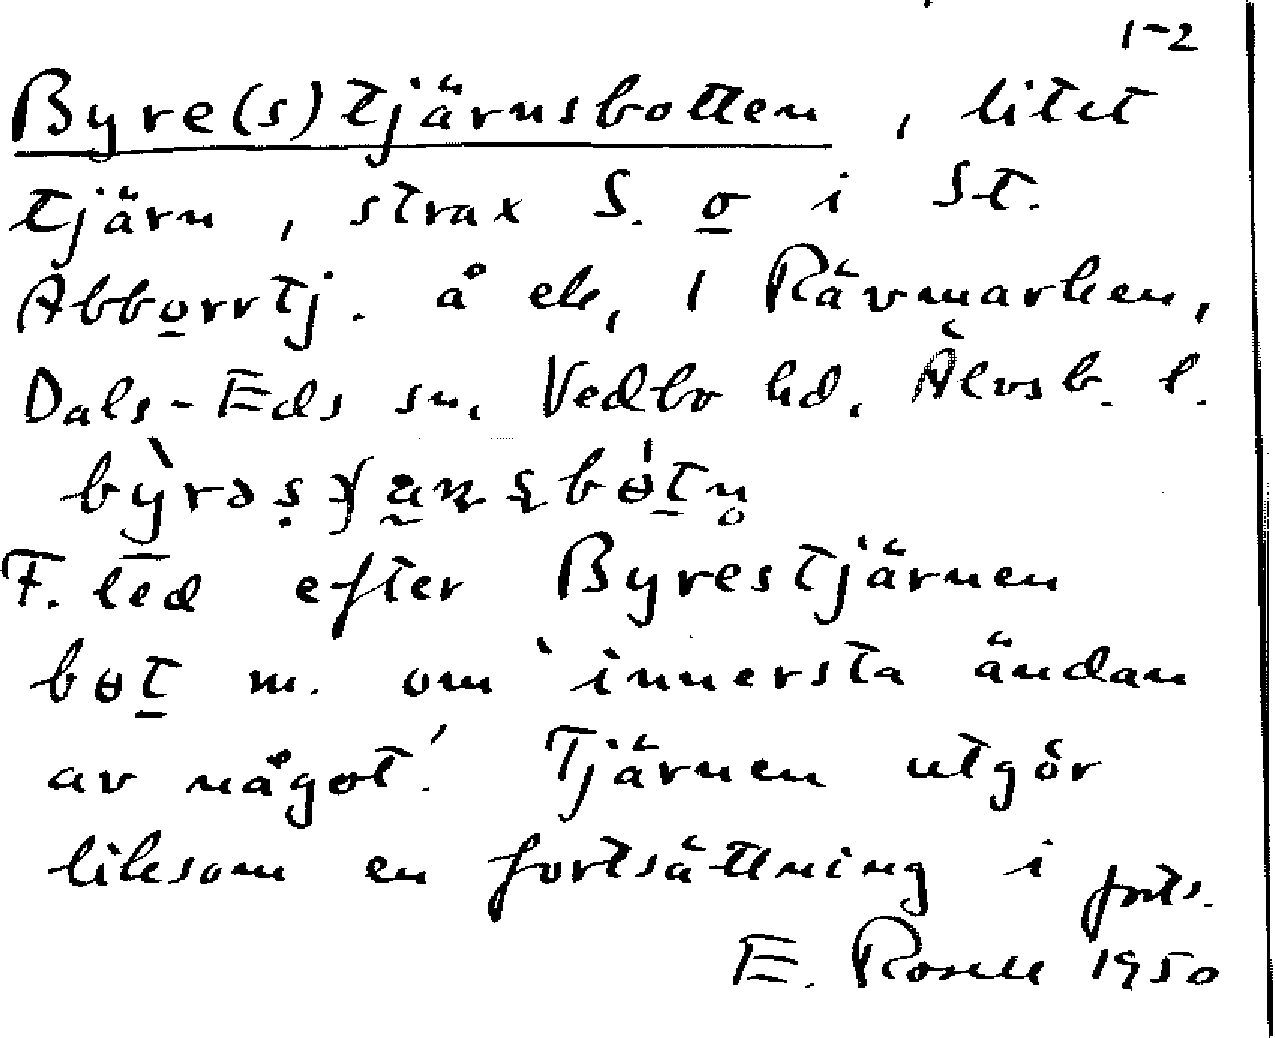 1-2
Byre(s)tjärnsbotten, litet
tjärn, strax S. o i St.
Abborrtj. å ek, 1 Rävmarken,
Dals-Eds sn, Vedbo hd, Älvsb. l.
F. led efter Byrestjärnen
bɵt m. om 'innersta ändan
av något'. Tjärnen utgör
liksom en fortsättning i forts.
E. Rosell 1950